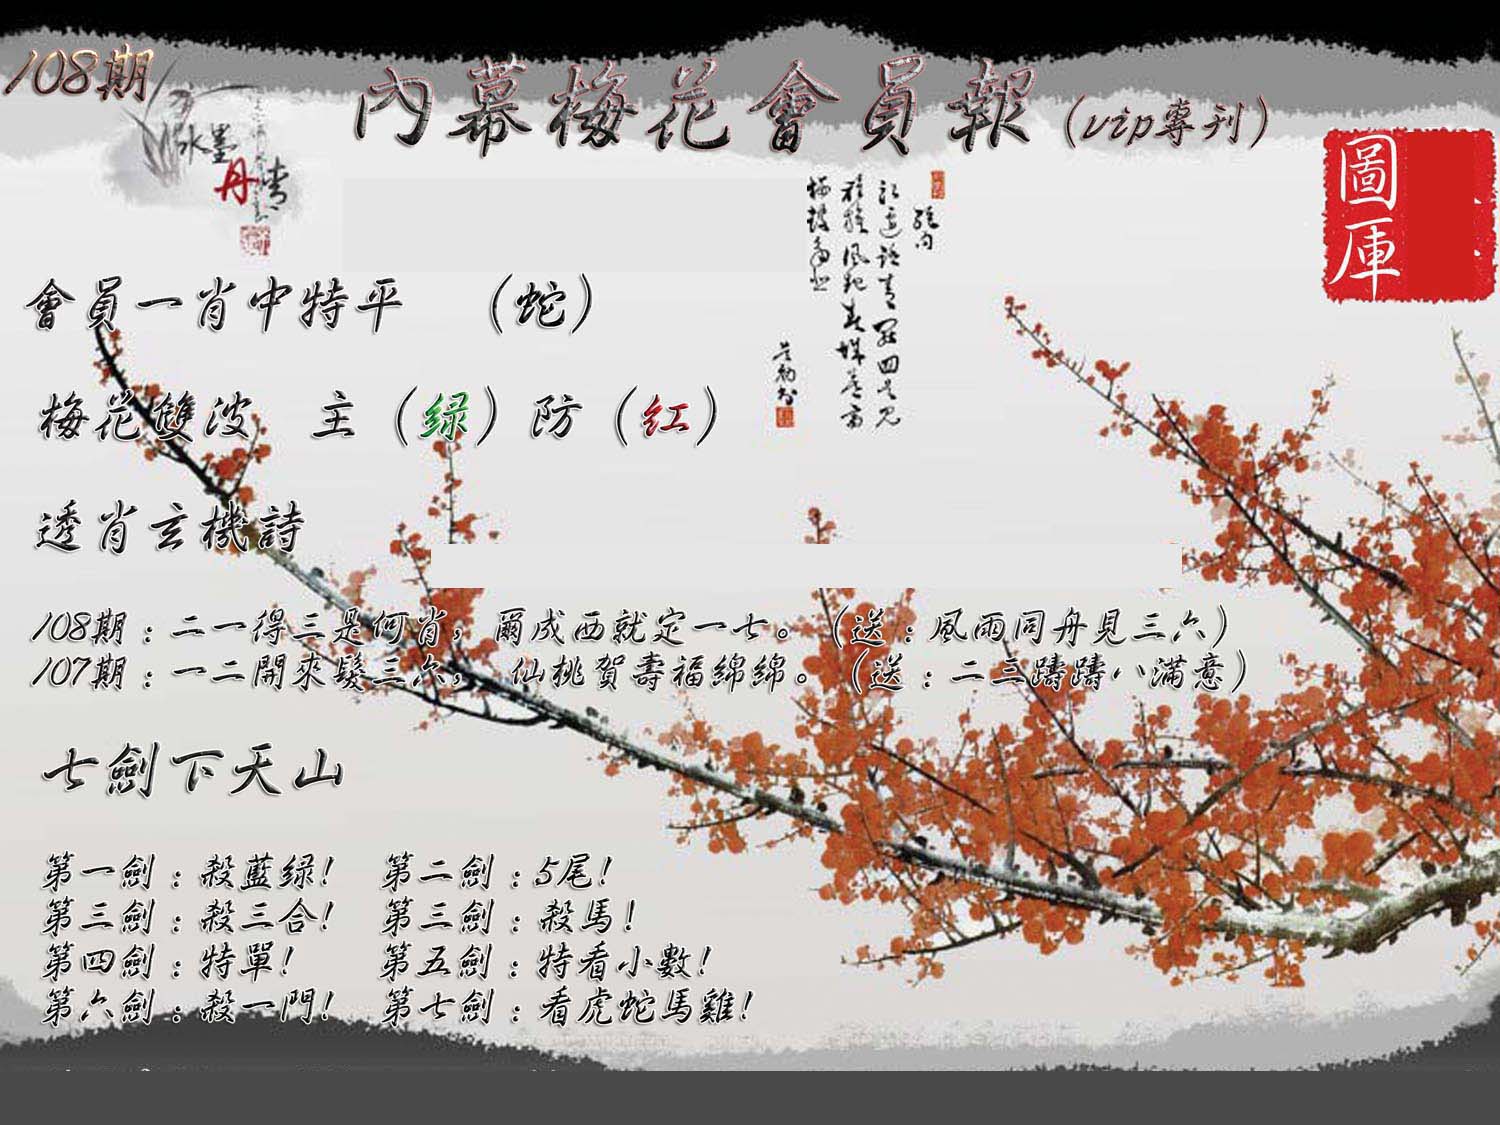 108期
內幕梅花會員報(vip專刊)
水墨
丹青
圖庫
會員一肖中特平 (蛇)
梅花雙波 主(绿)防(红)
透肖玄機詩
108期:二一得三是何肖,爾成西就定一七。(送:風雨同舟見三六)
107期:一二開來髮三六, 仙桃賀壽福綿綿。(送:二三躊躊八滿意)
七劍下天山
第一劍:殺藍绿! 第二劍:5尾!
第三劍:殺三合! 第三劍:殺馬!
第四劍:特單! 第五劍:特看小數!
第六劍:殺一門! 第七劍:看虎蛇馬雞!